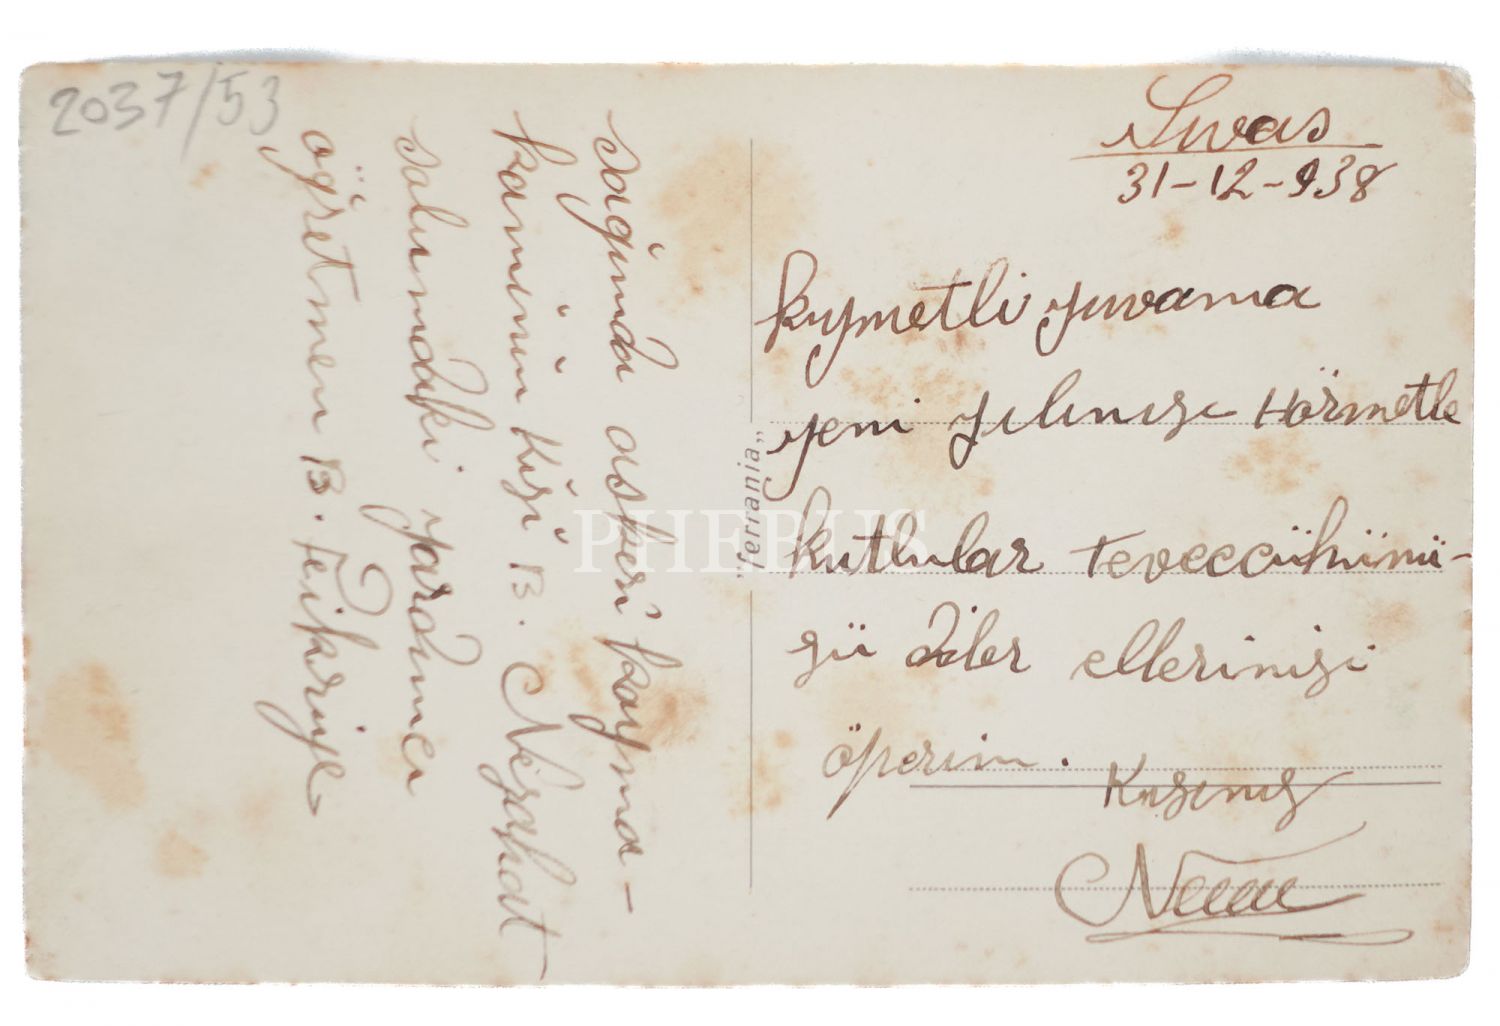 2037/53
Sıvas
31-12-938
kıymetli yuvama
yeni yılınızı Hörmetle
kutlular Teveccühünü-
zü diler ellerinizi
öperim.
Kızınız
"ferrania"
sağında askeri kayma-
kamının kızı B. Nezahat
salımdaki yardımcı
öğretmen B. Fikriye
PHEBUS